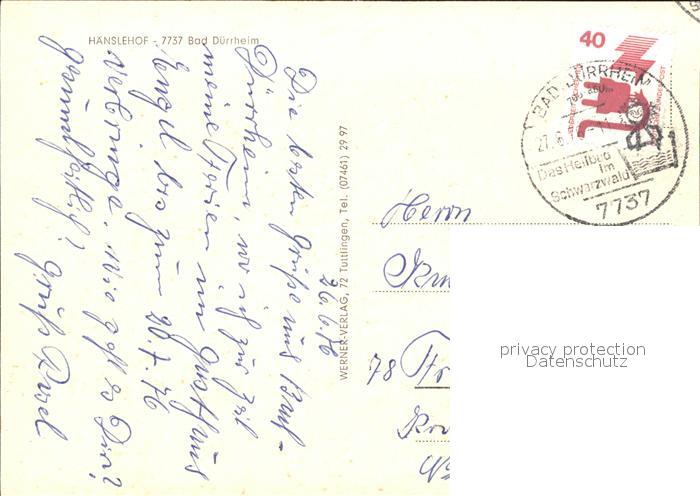 HÄNSLEHOF - 7737 Bad Dürrheim
26.6.76
Die besten Grüße aus Bad-
Dürrheim, wo ich zur Zeit
meine Ferien im Gasthaus
Engel bis zum 20.7.76
verbringe. Wie geht es Dir?
Gruß
WERNER-VERLAG, 72 Tuttlingen, Tel. (07461) 29 97
40
BAD DÜRRHEIM
Das Heilbad
im
Schwarzwald
7737
Herrn
78
privacy protection
Datenschutz